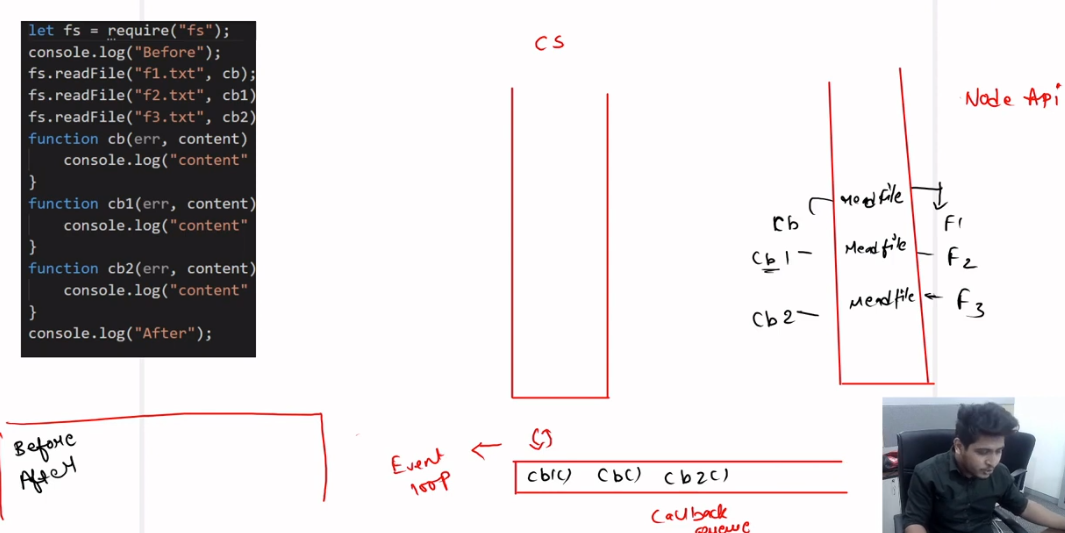 let fs = require("fs");
console.log("Before");
fs.readFile("f1.txt", cb);
fs.readFile("f2.txt", cb1)
fs.readFile("f3.txt", cb2)
function cb(err, content)
console.log("content"
}
function cb1(err, content)
console.log("content"
}
function cb2(err, content)
console.log("content"
}
console.log("After");
CS
Node Api
readfile
Cb
F1
Cb1
readfile
F2
Cb2
readfile
F3
Before
After
Event
loop
cb1() cb() cb2()
Callback
queue